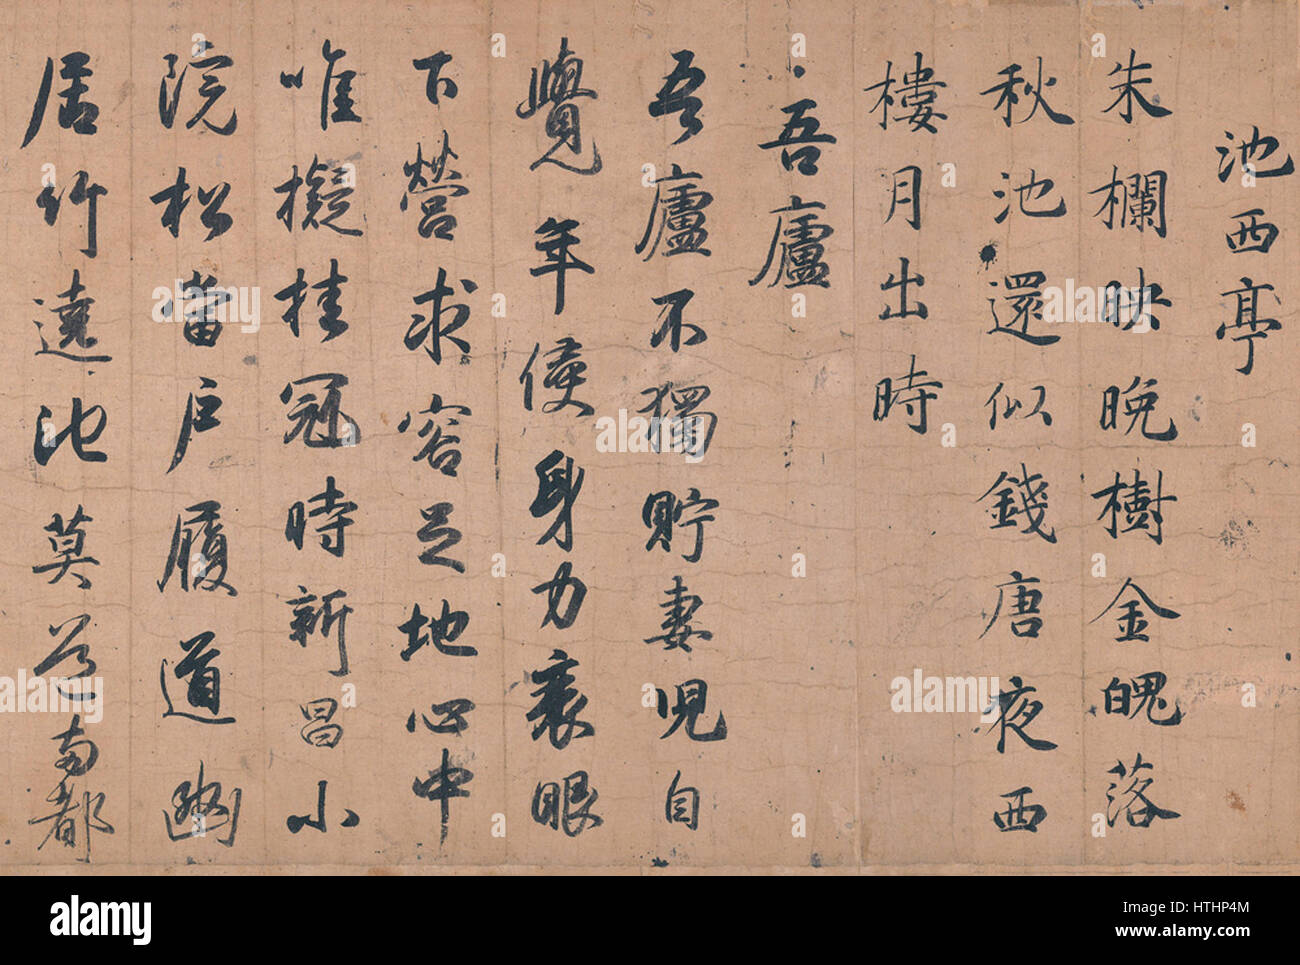 池西亭
朱欄映晚樹金魄落
秋池還似錢唐夜西
樓月出時
吾廬
吾廬不獨貯妻兒自
覺年侵身力衰眼
下營求容足地心中
唯擬挂冠時新昌小
院松當戶履道幽
居竹遶池莫道南都
alamy
Image ID: HTHP4M
www.alamy.com